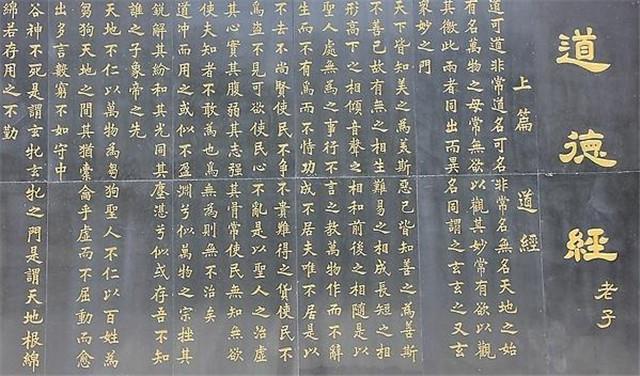 道德經
老子
上篇 道經
道可道非常道名可名非常名無名天地之始
有名萬物之母常無欲以觀其妙常有欲以觀
其徼此兩者同出而異名同謂之玄玄之又玄
眾妙之門
天下皆知美之為美斯惡已皆知善之為善斯
不善已故有無之相生難易之相成長短之相
形高下之相傾音聲之相和前後之相隨是以
聖人處無為之事行不言之教萬物作而不辭
生而不有為而不恃功成不居夫唯不居是以
不去不尚賢使民不爭不貴難得之貨使民不
為盜不見可欲使民心不亂是以聖人之治虛
其心實其腹弱其志強其骨常使民無知無欲
使夫知者不敢為也為無為則無不治矣
道沖而用之或似不盈淵兮似萬物之宗挫其
銳解其紛和其光同其塵湛兮似或存吾不知
誰之子象帝之先
天地不仁以萬物為芻狗聖人不仁以百姓為
芻狗天地之間其猶橐龠乎虛而不屈動而愈
出多言數窮不如守中
谷神不死是謂玄牝玄牝之門是謂天地根綿
綿若存用之不勤